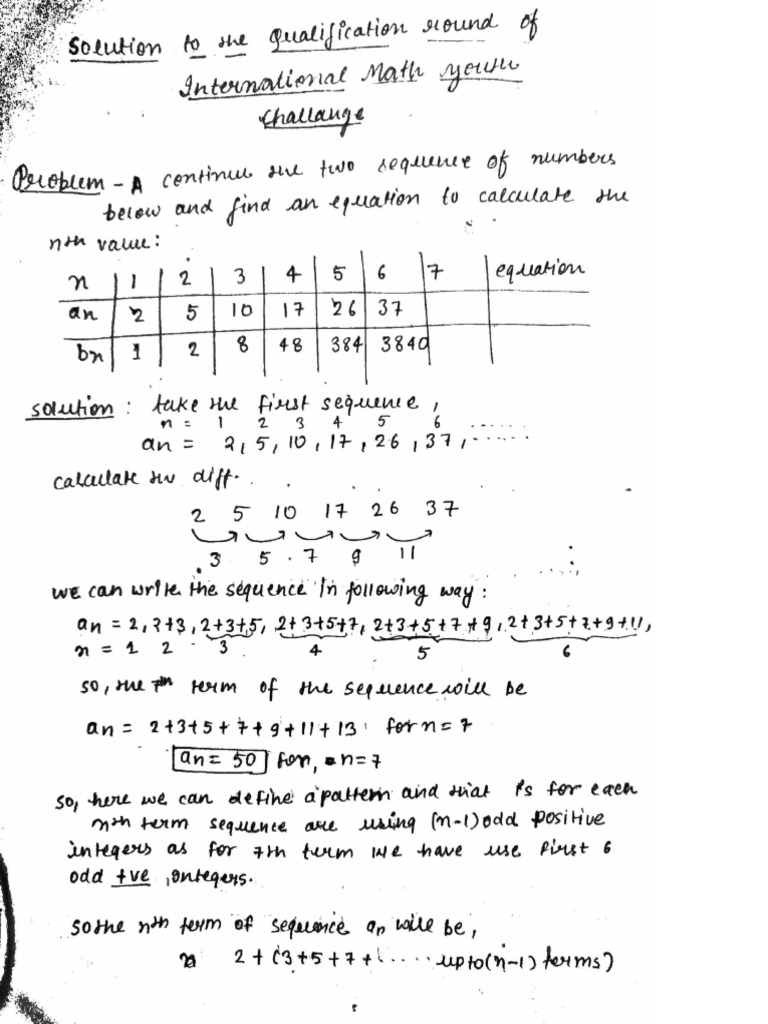 Solution to the Qualification round of
International Math youth
Challange
Problem - A continue the two sequence of numbers
below and find an equation to calculate the
nth value:
n | 1 | 2 | 3 | 4 | 5 | 6 | 7 | equation
an | 2 | 5 | 10 | 17 | 26 | 37
bn | 1 | 2 | 8 | 48 | 384 | 3840
solution: take the first sequence,
n = 1 2 3 4 5 6 ......
an = 2, 5, 10, 17, 26, 37, ......
calculate the diff.
2 5 10 17 26 37
3 5 7 9 11
we can write the sequence in following way:
an = 2, 2+3, 2+3+5, 2+3+5+7, 2+3+5+7+9, 2+3+5+7+9+11,
n = 1 2 3 4 5 6
so, the 7th term of the sequence will be
an = 2+3+5+7+9+11+13 for n=7
an = 50 for, n=7
so, here we can define a pattern and that is for each
nth term sequence are using (n-1) odd positive
integers as for 7th term we have use first 6
odd +ve integers.
so the nth term of sequence an will be,
2 + (3+5+7+ ..... upto (n-1) terms)